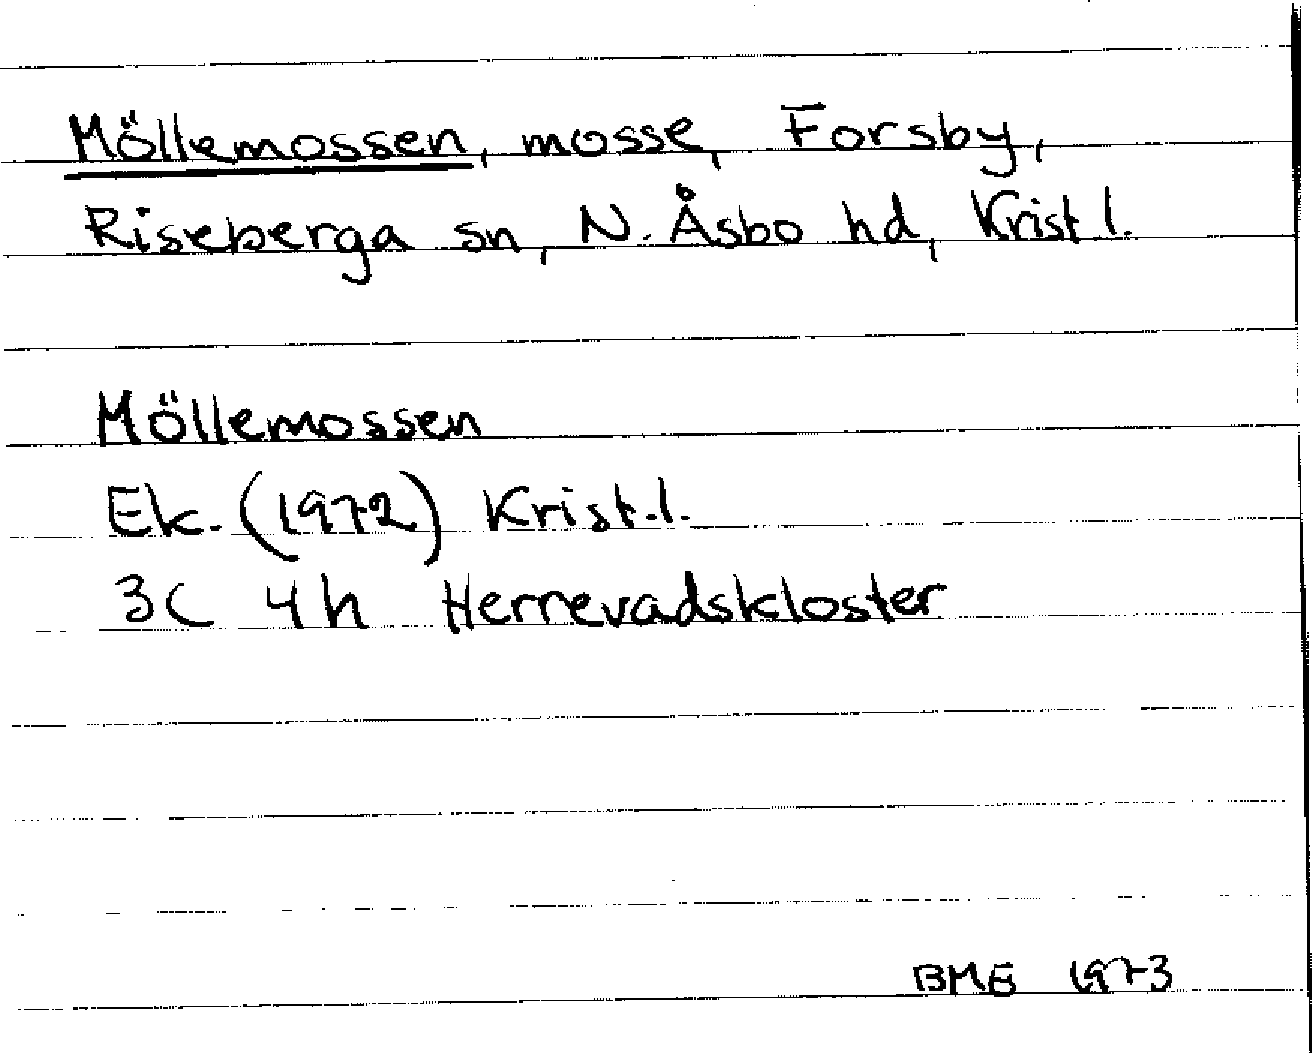 Möllemossen, mosse, Forsby,
Riseberga sn, N. Åsbo hd, Krist l.
Möllemossen
Ek. (1972) Krist.l.
3C 4h Herrevadskloster
BME 1973